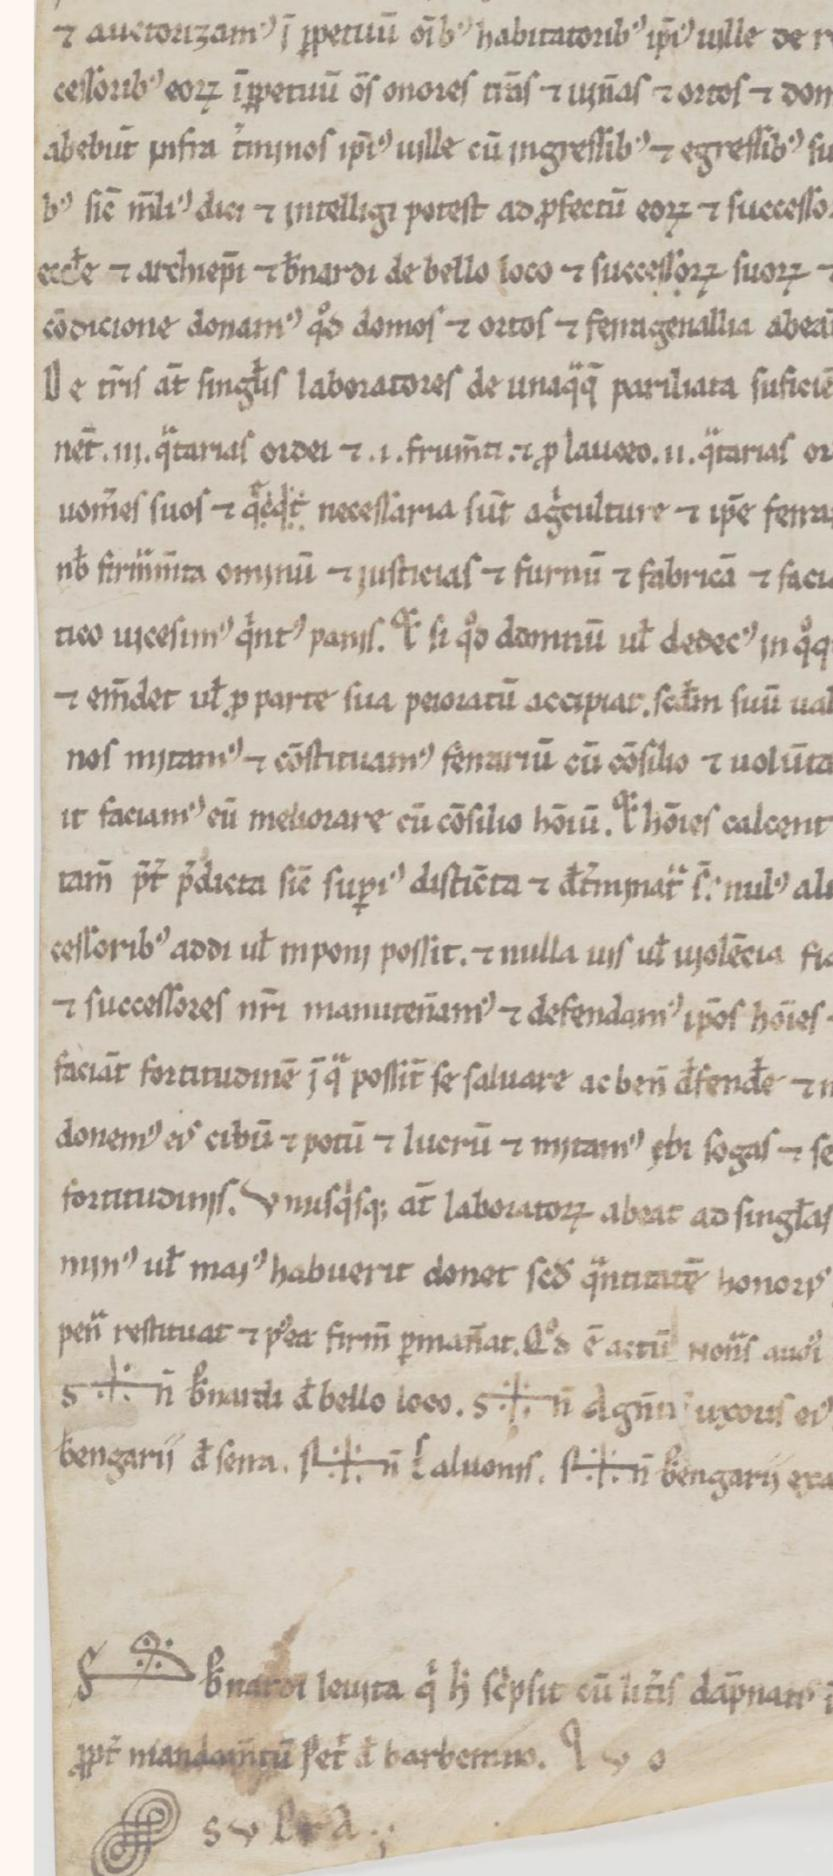 ⁊ auctorizamꝰ ī ꝑpetuū oībꝰ habitatoribꝰ ip̄iꝰ uille de
cessoribꝰ eoꝝ ī ꝑpetuū om̄s onores tr̄as ⁊ uin̄as ⁊ ortos ⁊ dom
abebūt infra t̄minos ip̄iꝰ uille cū ingressibꝰ ⁊ egressibꝰ su
bꝰ sic̄ ml̄iꝰ dici ⁊ intelligi potest ad ꝓfectū eoꝝ ⁊ successo
eccl̄e ⁊ archiep̄i ⁊ b̄nardi de bello loco ⁊ successoꝝ suoꝝ ⁊
cōdicione donamꝰ qͦd domos ⁊ ortos ⁊ ferragenallia abea
De tr̄is at̄ singl̄is laboratores de unaqͣq̄ pariliata suficiē
net̄ .iii. qͣrtarias ordei ⁊ .i. frum̄ti ⁊ ꝓ lauceo .ii. qͣrtarias or
uom̄es suos ⁊ necessaria sūt agͥculture ⁊ ip̄e ferra
nb̄ firmam̄ta ominū ⁊ iusticias ⁊ furnū ⁊ fabricā ⁊ facia
tico uicesimꝰ qͥntꝰ panis. Et si qͦd damnū ul̄ dedecꝰ in qͦq
⁊ em̄det ul̄ ꝓ parte sua peioratū accipiat. scd̄m suū ual
nos mitamꝰ ⁊ cōstituamꝰ ferrariū cū cōsilio ⁊ uolūta
it faciamꝰ eū meliorare cū cōsilio hōiū. Et hōies calcent
tam̄ p̄t̄ p̄dicta sic̄ suꝑiꝰ distīcta ⁊ dt̄minatͣ s̄: nulꝰ ali
cessoribꝰ addi ul̄ inponi possit. ⁊ nulla uis ul̄ uiolēcia fi
⁊ successores nr̄i manuten̄amꝰ ⁊ defendamꝰ ip̄os hōies
faciāt fortitudinē ī qͣ possīt se saluare ac ben̄ d̄fend̄e ⁊
donemꝰ eiꝰ cibū ⁊ potū ⁊ lucrū ⁊ mitamꝰ ibi sogas ⁊ se
fortitudinis. Unusqͥsqꝫ at̄ laboratoꝝ abeat ad singl̄as
minꝰ ul̄ maiꝰ habuerit donet scd̄ qͣntitatē honoris
pen̄ restituat ⁊ pꝰea firm̄ ꝑman̄at. Qͦd ē actū Non̄s
S + n̄ b̄nardi d̄ bello loco. S + n̄ Agn̄tis uxoris eiꝰ
b̄engarii d̄ serra. S + n̄ aluonis. S + n̄ b̄engarii exa
S b̄nardi leuita qͥ h̄ scͥpsit cū lit̄is dāpnatis
ꝓpt̄ mandam̄tū Pet̄ d̄ barberano. Q v o
S v P R A .;